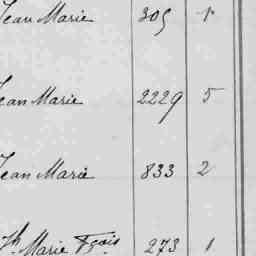 Jean Marie 305 1
Jean Marie 2229 5
Jean Marie 833 2
Jh Marie Fçois 273 1